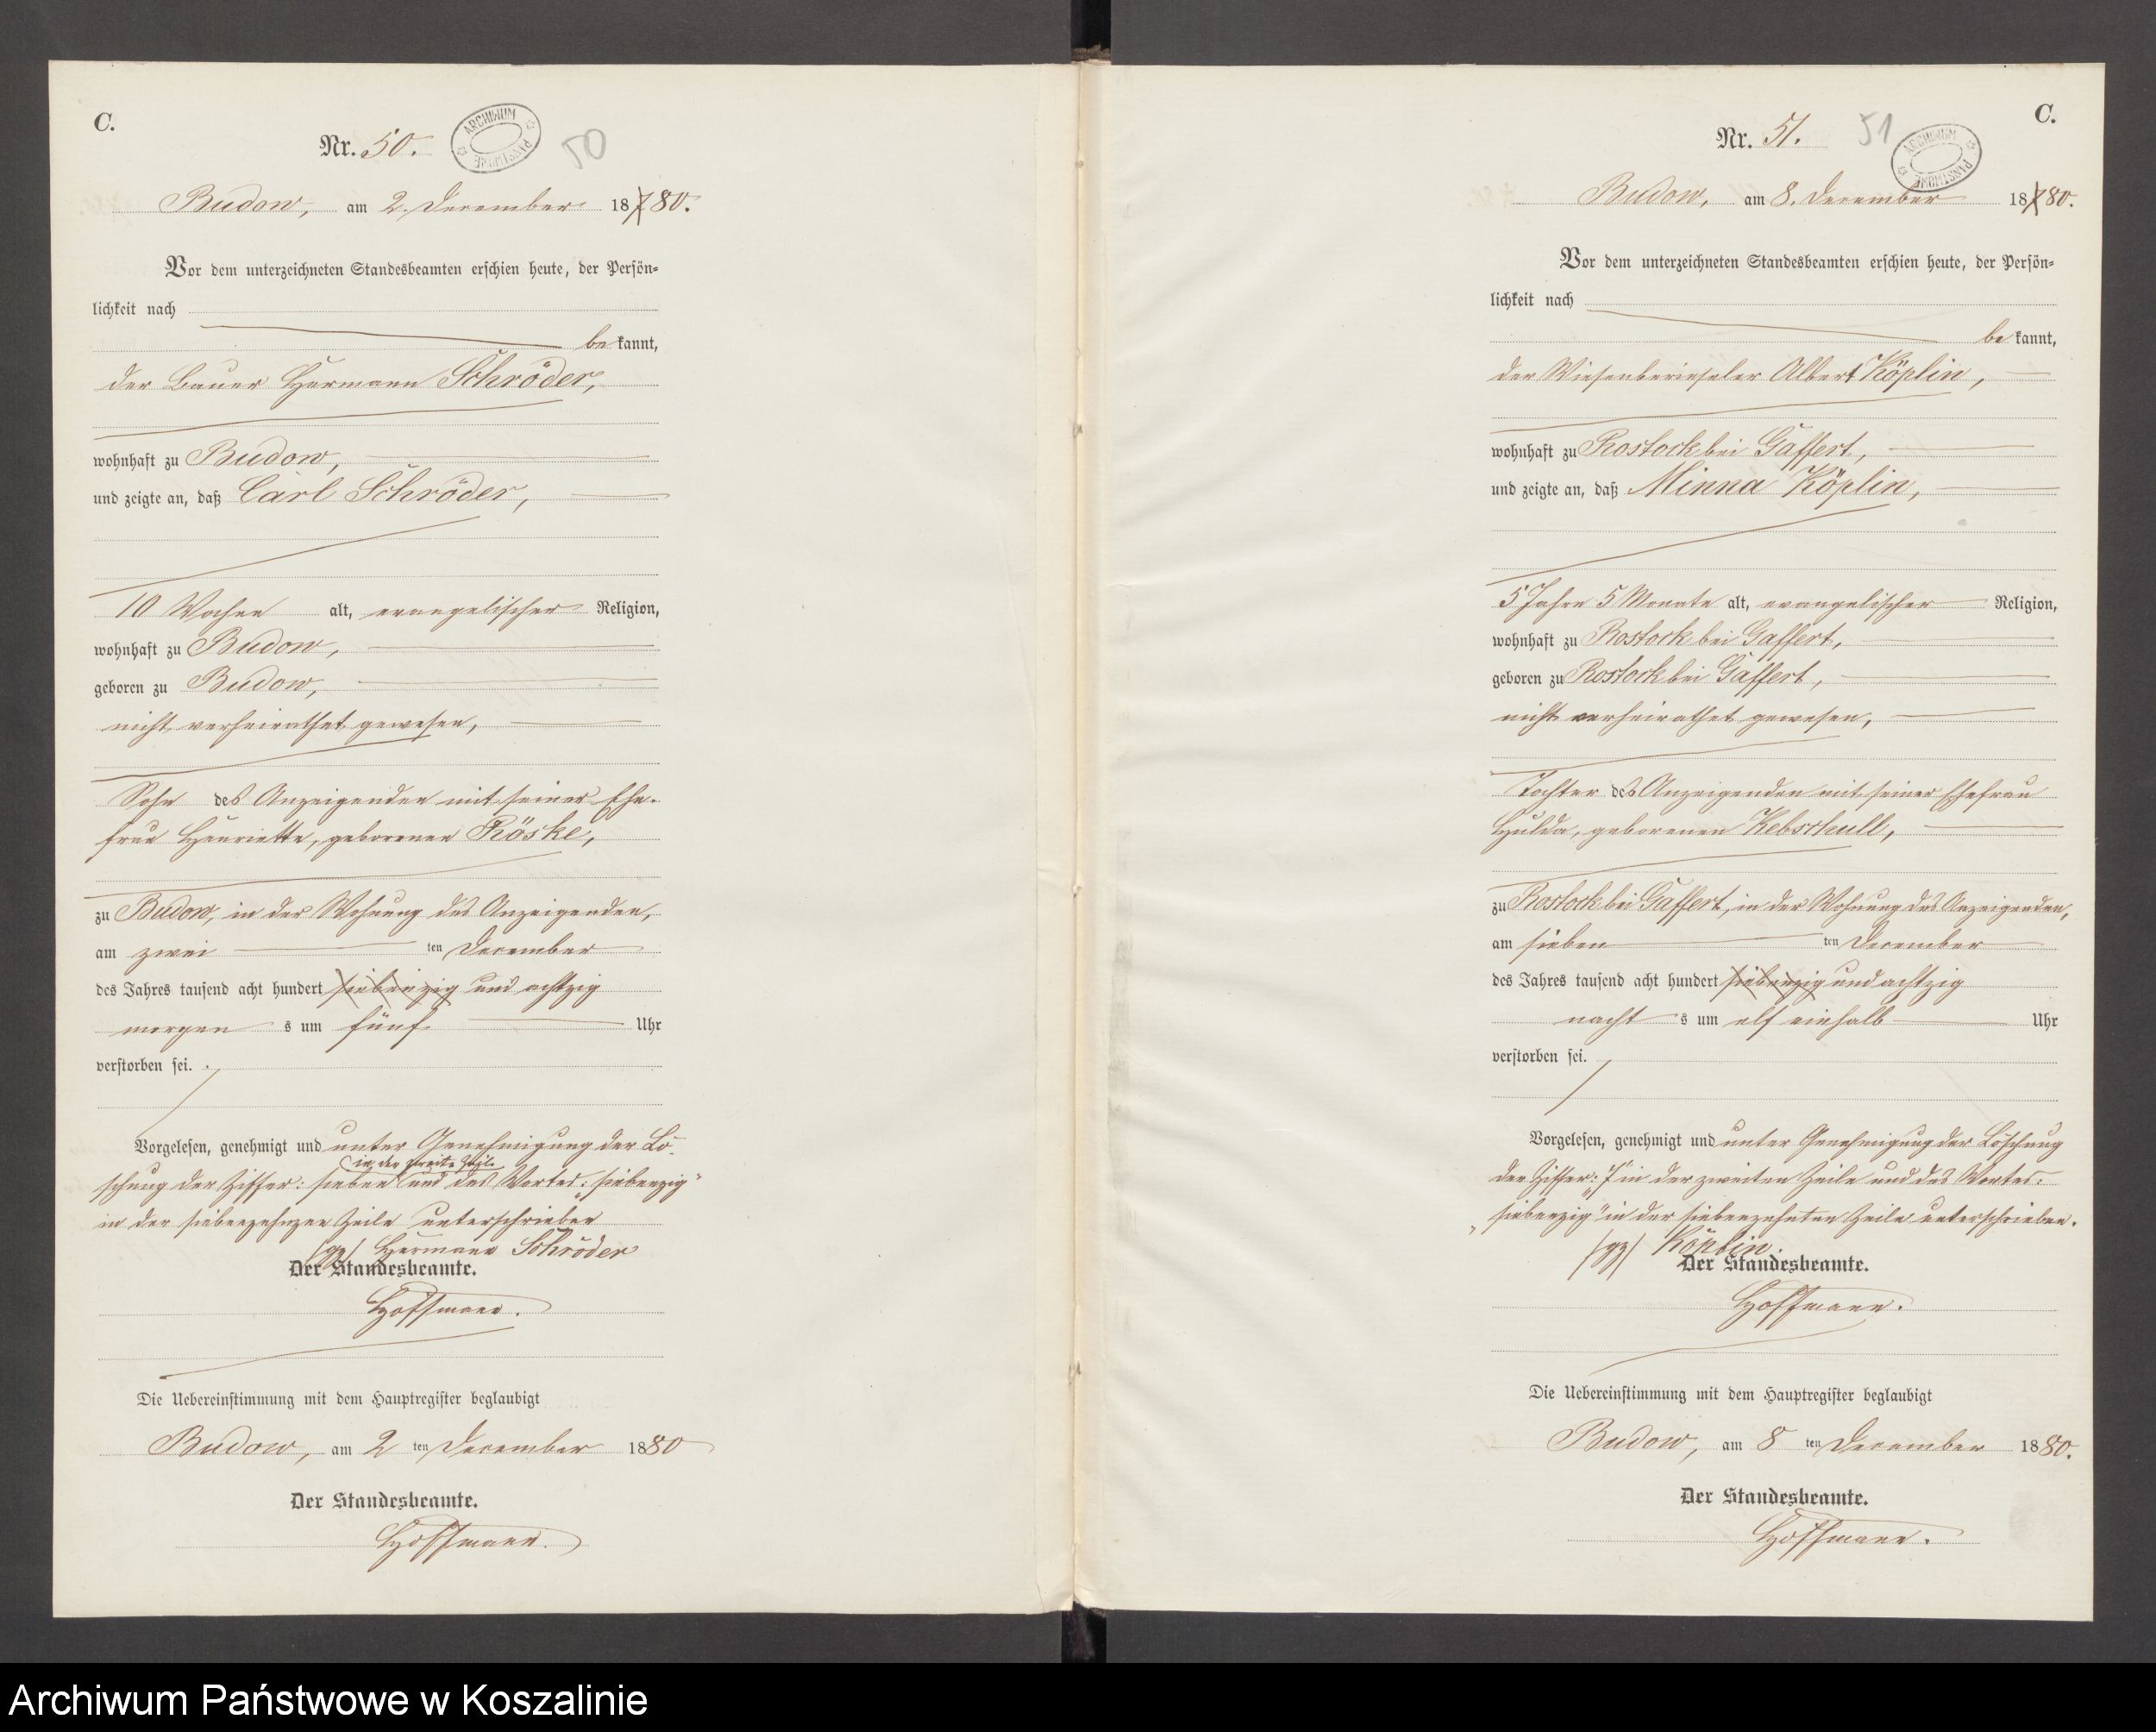 C.
Nr. 50.
ARCHIWUM PAŃSTWOWE
50
Budow, am 2. December 18780.
Vor dem unterzeichneten Standesbeamten erschien heute, der Persön=
lichkeit nach
bekannt,
der Bauer Hermann Schröder,
wohnhaft zu Budow,
und zeigte an, daß Carl Schröder,
10 Wochen alt, evangelischer Religion,
wohnhaft zu Budow,
geboren zu Budow,
nicht verheirathet gewesen,
Sohn des Anzeigenden mit seiner Ehe-
frau Henriette, geborenen Röske,
zu Budow, in der Wohnung des Anzeigenden,
am zwei ten December
des Jahres tausend acht hundert siebenzig und achtzig
morgens um fünf Uhr
verstorben sei.
Vorgelesen, genehmigt und unter Genehmigung der Lö-
in der zweite Zeile
schung der Ziffer: sieben und des Wortes: „siebenzig"
in der siebenzehnzen Zeile unterschrieben
/gz/ Hermann Schröder
Der Standesbeamte.
Hoffmann.
Die Uebereinstimmung mit dem Hauptregister beglaubigt
Budow, am 2 ten December 1880
Der Standesbeamte.
Hoffmann.
C.
Nr. 51.
51
ARCHIWUM PAŃSTWOWE
Budow, am 8. December 18780.
Vor dem unterzeichneten Standesbeamten erschien heute, der Persön=
lichkeit nach
bekannt,
der Wiesenberieseler Albert Köplin,
wohnhaft zu Rostock bei Gaffert,
und zeigte an, daß Minna Köplin,
5 Jahre 5 Monate alt, evangelischer Religion,
wohnhaft zu Rostock bei Gaffert,
geboren zu Rostock bei Gaffert,
nicht verheirathet gewesen,
Tochter des Anzeigenden mit seiner Ehefrau
Hulda, geborenen Kebschull,
zu Rostock bei Gaffert, in der Wohnung des Anzeigenden,
am sieben ten December
des Jahres tausend acht hundert siebenzig und achtzig
nachts um elf einhalb Uhr
verstorben sei.
Vorgelesen, genehmigt und unter Genehmigung der Löschung
der Ziffer: „7" in der zweiten Zeile und des Wortes:
„siebenzig" in der siebenzehnten Zeile unterschrieben.
/gz/ Köplin.
Der Standesbeamte.
Hoffmann.
Die Uebereinstimmung mit dem Hauptregister beglaubigt
Budow, am 8 ten December 1880.
Der Standesbeamte.
Hoffmann.
Archiwum Państwowe w Koszalinie